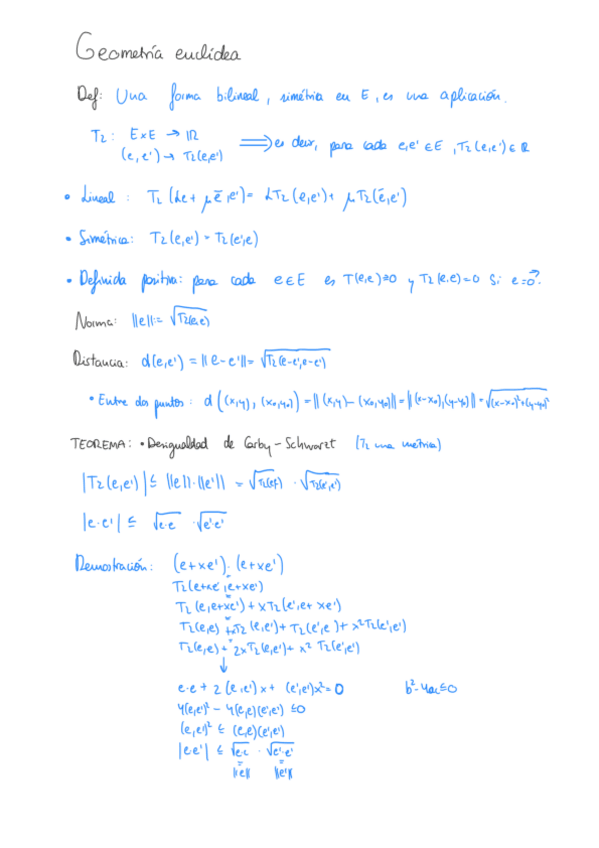 Geometría euclídea
Def: Una forma bilineal, simétria en E, es una aplicación.
T2: E×E → IR
(e, e') → T2(e,e') ⟹ es decir, para cada e,e' ∈ E, T2(e,e') ∈ R
• Lineal: T2(λe + μē, e') = λT2(e,e') + μT2(ē,e')
• Simétrica: T2(e,e') = T2(e',e)
• Definida positiva: para cada e∈E es T(e,e)≥0 y T2(e.e)=0 si e=0⃗.
Norma: ||e||:= √T2(e,e)
Distancia: d(e,e') = ||e-e'|| = √T2(e-e',e-e')
• Entre dos puntos: d((x,y), (x0,y0)) = ||(x,y)-(x0,y0)|| = ||(x-x0),(y-y0)|| = √(x-x0)²+(y-y0)²
TEOREMA: • Desigualdad de Carby-Schwarzt (T2 una métrica)
|T2(e,e')| ≤ ||e||·||e'|| = √T2(e,e) · √T2(e',e')
|e·e'| ≤ √e·e · √e'e'
Demostración: (e+xe')·(e+xe')
T2(e+xe',e+xe')
T2(e,e+xe') + xT2(e',e+xe')
T2(e,e) + xT2(e,e') + T2(e',e) + x²T2(e',e')
T2(e,e) + 2xT2(e,e') + x² T2(e',e')
↓
e·e + 2(e,e')x + (e',e')x² = 0 b²-4ac≤0
4(e,e')² - 4(e,e)(e',e') ≤0
(e,e')² ≤ (e,e)(e',e')
|e·e'| ≤ √e·e · √e'·e'
= =
||e|| ||e'||